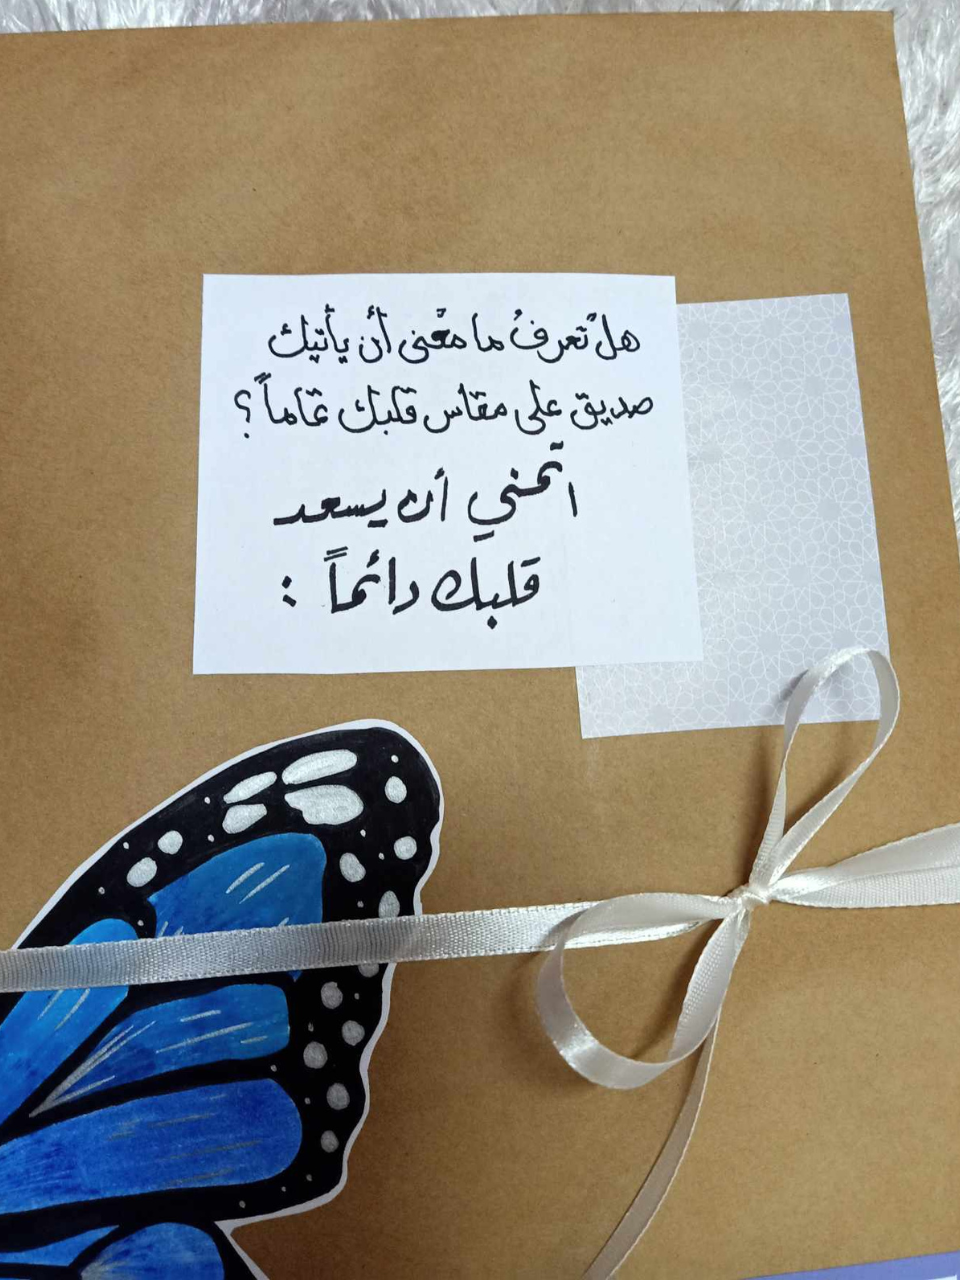 هل تعرفُ ما معْنى أن يأتيك
صديق على مقاس قلبك تماماً ؟
اتمني أن يسعد
قلبك دائماً :